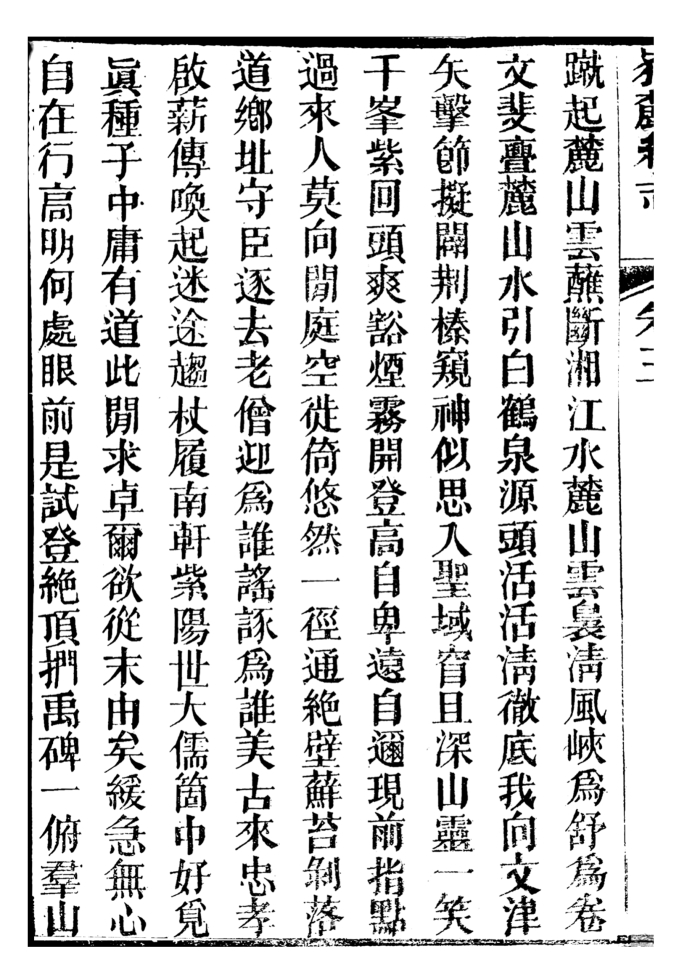 蹴起麓山雲蘸斷湘江水麓山雲裊淸風峽爲舒爲卷
文斐亹麓山水引白鶴泉源頭活活淸徹底我向文津
矢擊節擬闢荆榛窺神似思入聖域窅且深山靈一笑
千峯紫回頭爽豁煙霧開登高自卑遠自邇現前指點
過來人莫向閒庭空徙倚悠然一徑通絶壁蘚苔剝落
道鄉址守臣逐去老僧迎爲誰謠諑爲誰美古來忠孝
啟薪傳喚起迷途趨杖履南軒紫陽世大儒箇中好覓
眞種子中庸有道此閒求卓爾欲從末由矣緩急無心
自在行高明何處眼前是試登絶頂捫禹碑一俯羣山